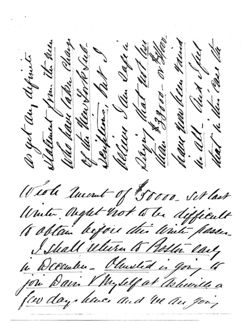 to get any definite
statement from the men
who have taken charge
of the New York sub-
scriptions, but I
believe I am safe in
saying that not less
than $3000 or $4000
have been raised
in all. And I feel
that in this case the
whole amount of $5000 set last
winter ought not to be difficult
to obtain before this winter passes.
I shall return to Boston early
in December. Olmsted is going to
join Davis & myself at Asheville a
few days hence and we are going